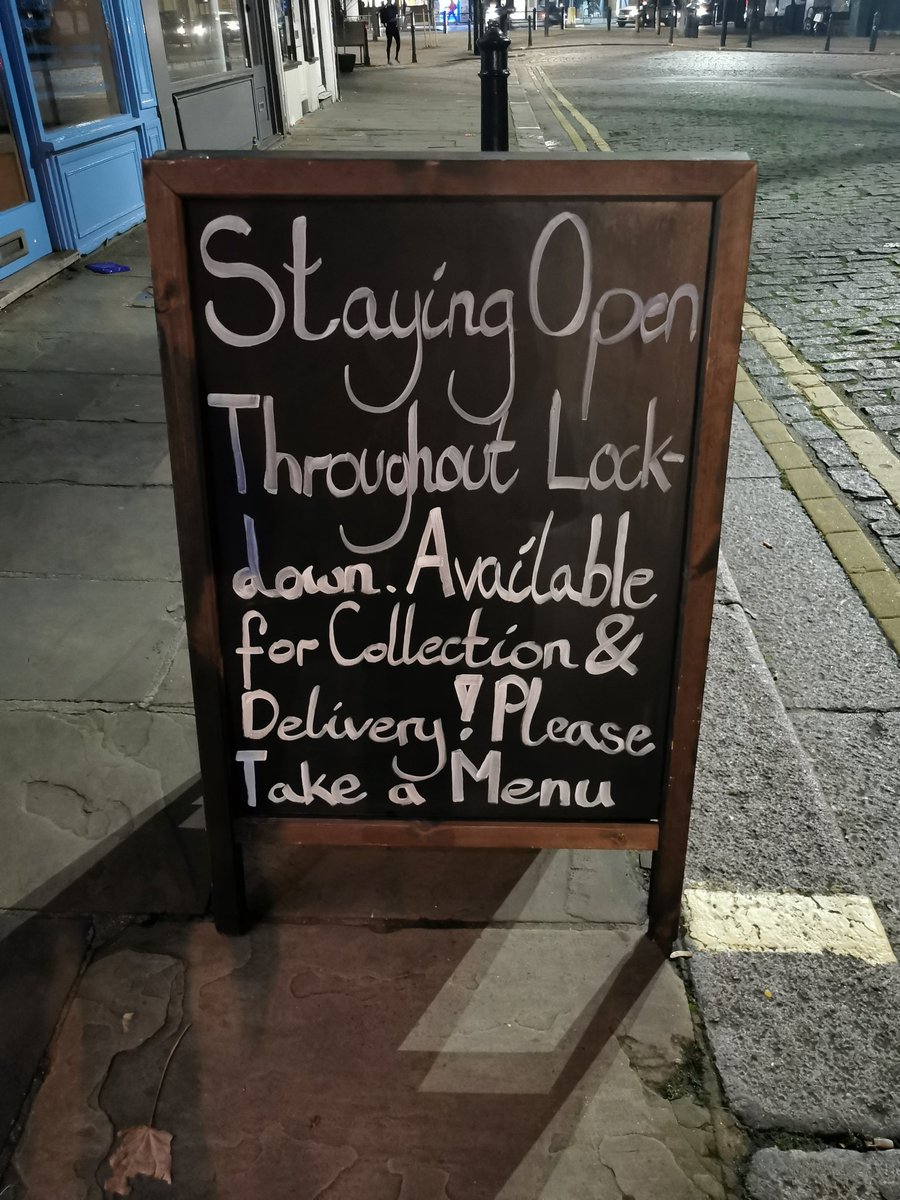 Staying Open
Throughout Lock-
down. Available
for Collection &
Delivery! Please
Take a Menu